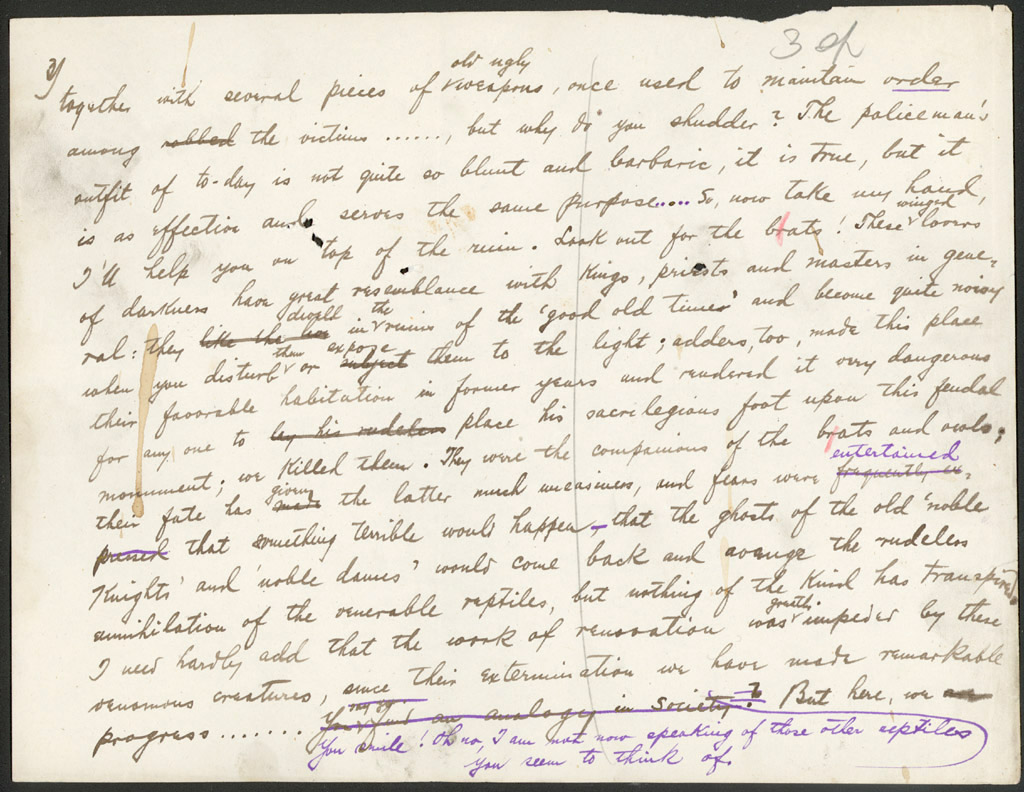 3)
3 sp
old ugly
together with several pieces of weapons, once used to maintain order
among robbed the victims ......, but why do you shudder? The policeman's
outfit of to-day is not quite so blunt and barbaric, it is true, but it
is as effective and serves the same purpose..... So, now take my hand,
I'll help you on top of the ruin. Look out for the bats! These winged lovers
of darkness have great resemblance with Kings, priests and masters in gene-
ral: they like the dwell in the ruins of the 'good old times' and become quite noisy
when you disturb them or subject expose them to the light; adders, too, made this place
their favorable habitation in former years and rendered it very dangerous
for any one to lay his rudeless place his sacrilegious foot upon this feudal
monument; we killed them. They were the companions of the bats and owls;
their fate has made given the latter much uneasiness, and fears were frequently ex- entertained
pressed that something terrible would happen – that the ghosts of the old 'noble
Knights' and 'noble dames' would come back and avenge the rudeless
annihilation of the venerable reptiles, but nothing of the Kind has transpired.
I need hardly add that the work of renovation was greatly impeded by these
venomous creatures, since their extermination we have made remarkable
progress ....... You may find an analogy in society? But here, we are
You smile! Oh no, I am not now speaking of those other reptiles
you seem to think of.